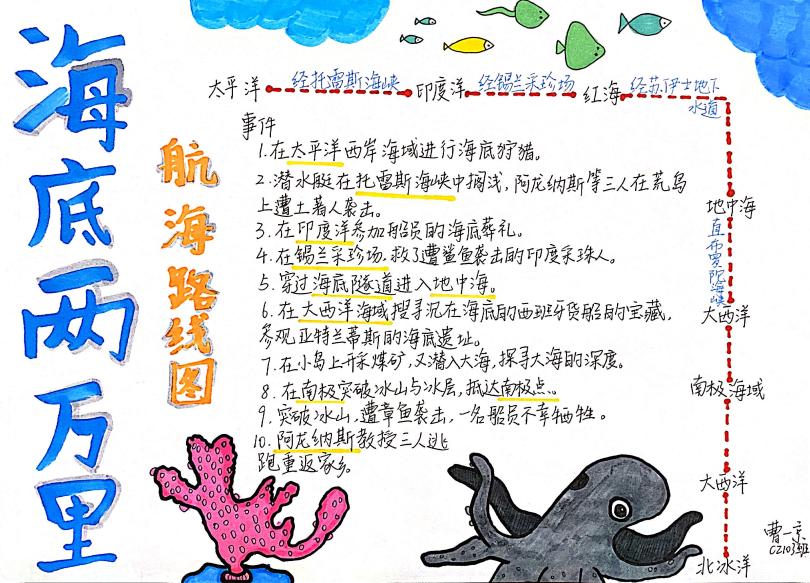 海底两万里
航海路线图
太平洋 经托雷斯海峡 印度洋 经锡兰采珍场 红海 经苏伊士地下
水道
地中海
直布罗陀海峡
大西洋
南极海域
大西洋
北冰洋
事件
1.在太平洋西岸海域进行海底狩猎。
2.潜水艇在托雷斯海峡中搁浅,阿龙纳斯等三人在荒岛
上遭土著人袭击。
3.在印度洋参加船员的海底葬礼。
4.在锡兰采珍场,救了遭鲨鱼袭击的印度采珠人。
5.穿过海底隧道进入地中海。
6.在大西洋海域搜寻沉在海底的西班牙货船的宝藏,
参观亚特兰蒂斯的海底遗址。
7.在小岛上开采煤矿,又潜入大海,探寻大海的深度。
8.在南极突破冰山与冰层,抵达南极点。
9.突破冰山,遭章鱼袭击,一名船员不幸牺牲。
10.阿龙纳斯教授三人逃
跑重返家乡。
曹一京
C2103班